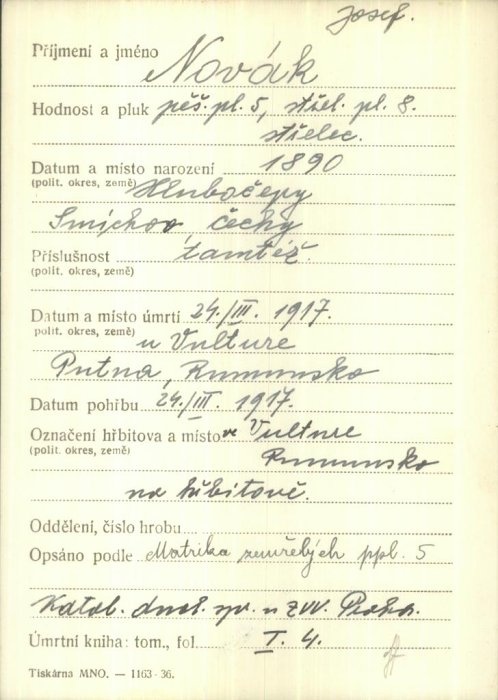 Josef.
Příjmení a jméno Novák
Hodnost a pluk pěš. pl. 5, střel. pl. 8.
střelec.
Datum a místo narození 1890
(polit. okres, země) Hlubočepy
Smíchov, čechy
Příslušnost tamtéž.
(polit. okres, země)
Datum a místo úmrtí 24./III. 1917.
polit. okres, země) u Vulture
Putna, Rumunsko
Datum pohřbu 24./III. 1917.
Označení hřbitova a místo ve Vulture
(polit. okres, země) Rumunsko
na hřbitově.
Oddělení, číslo hrobu
Opsáno podle Matrika zemřelých ppl. 5
Katol. duch. spr. u ZVV. Praha.
Úmrtní kniha: tom., fol. I. 4.
Tiskárna MNO. — 1163-36.